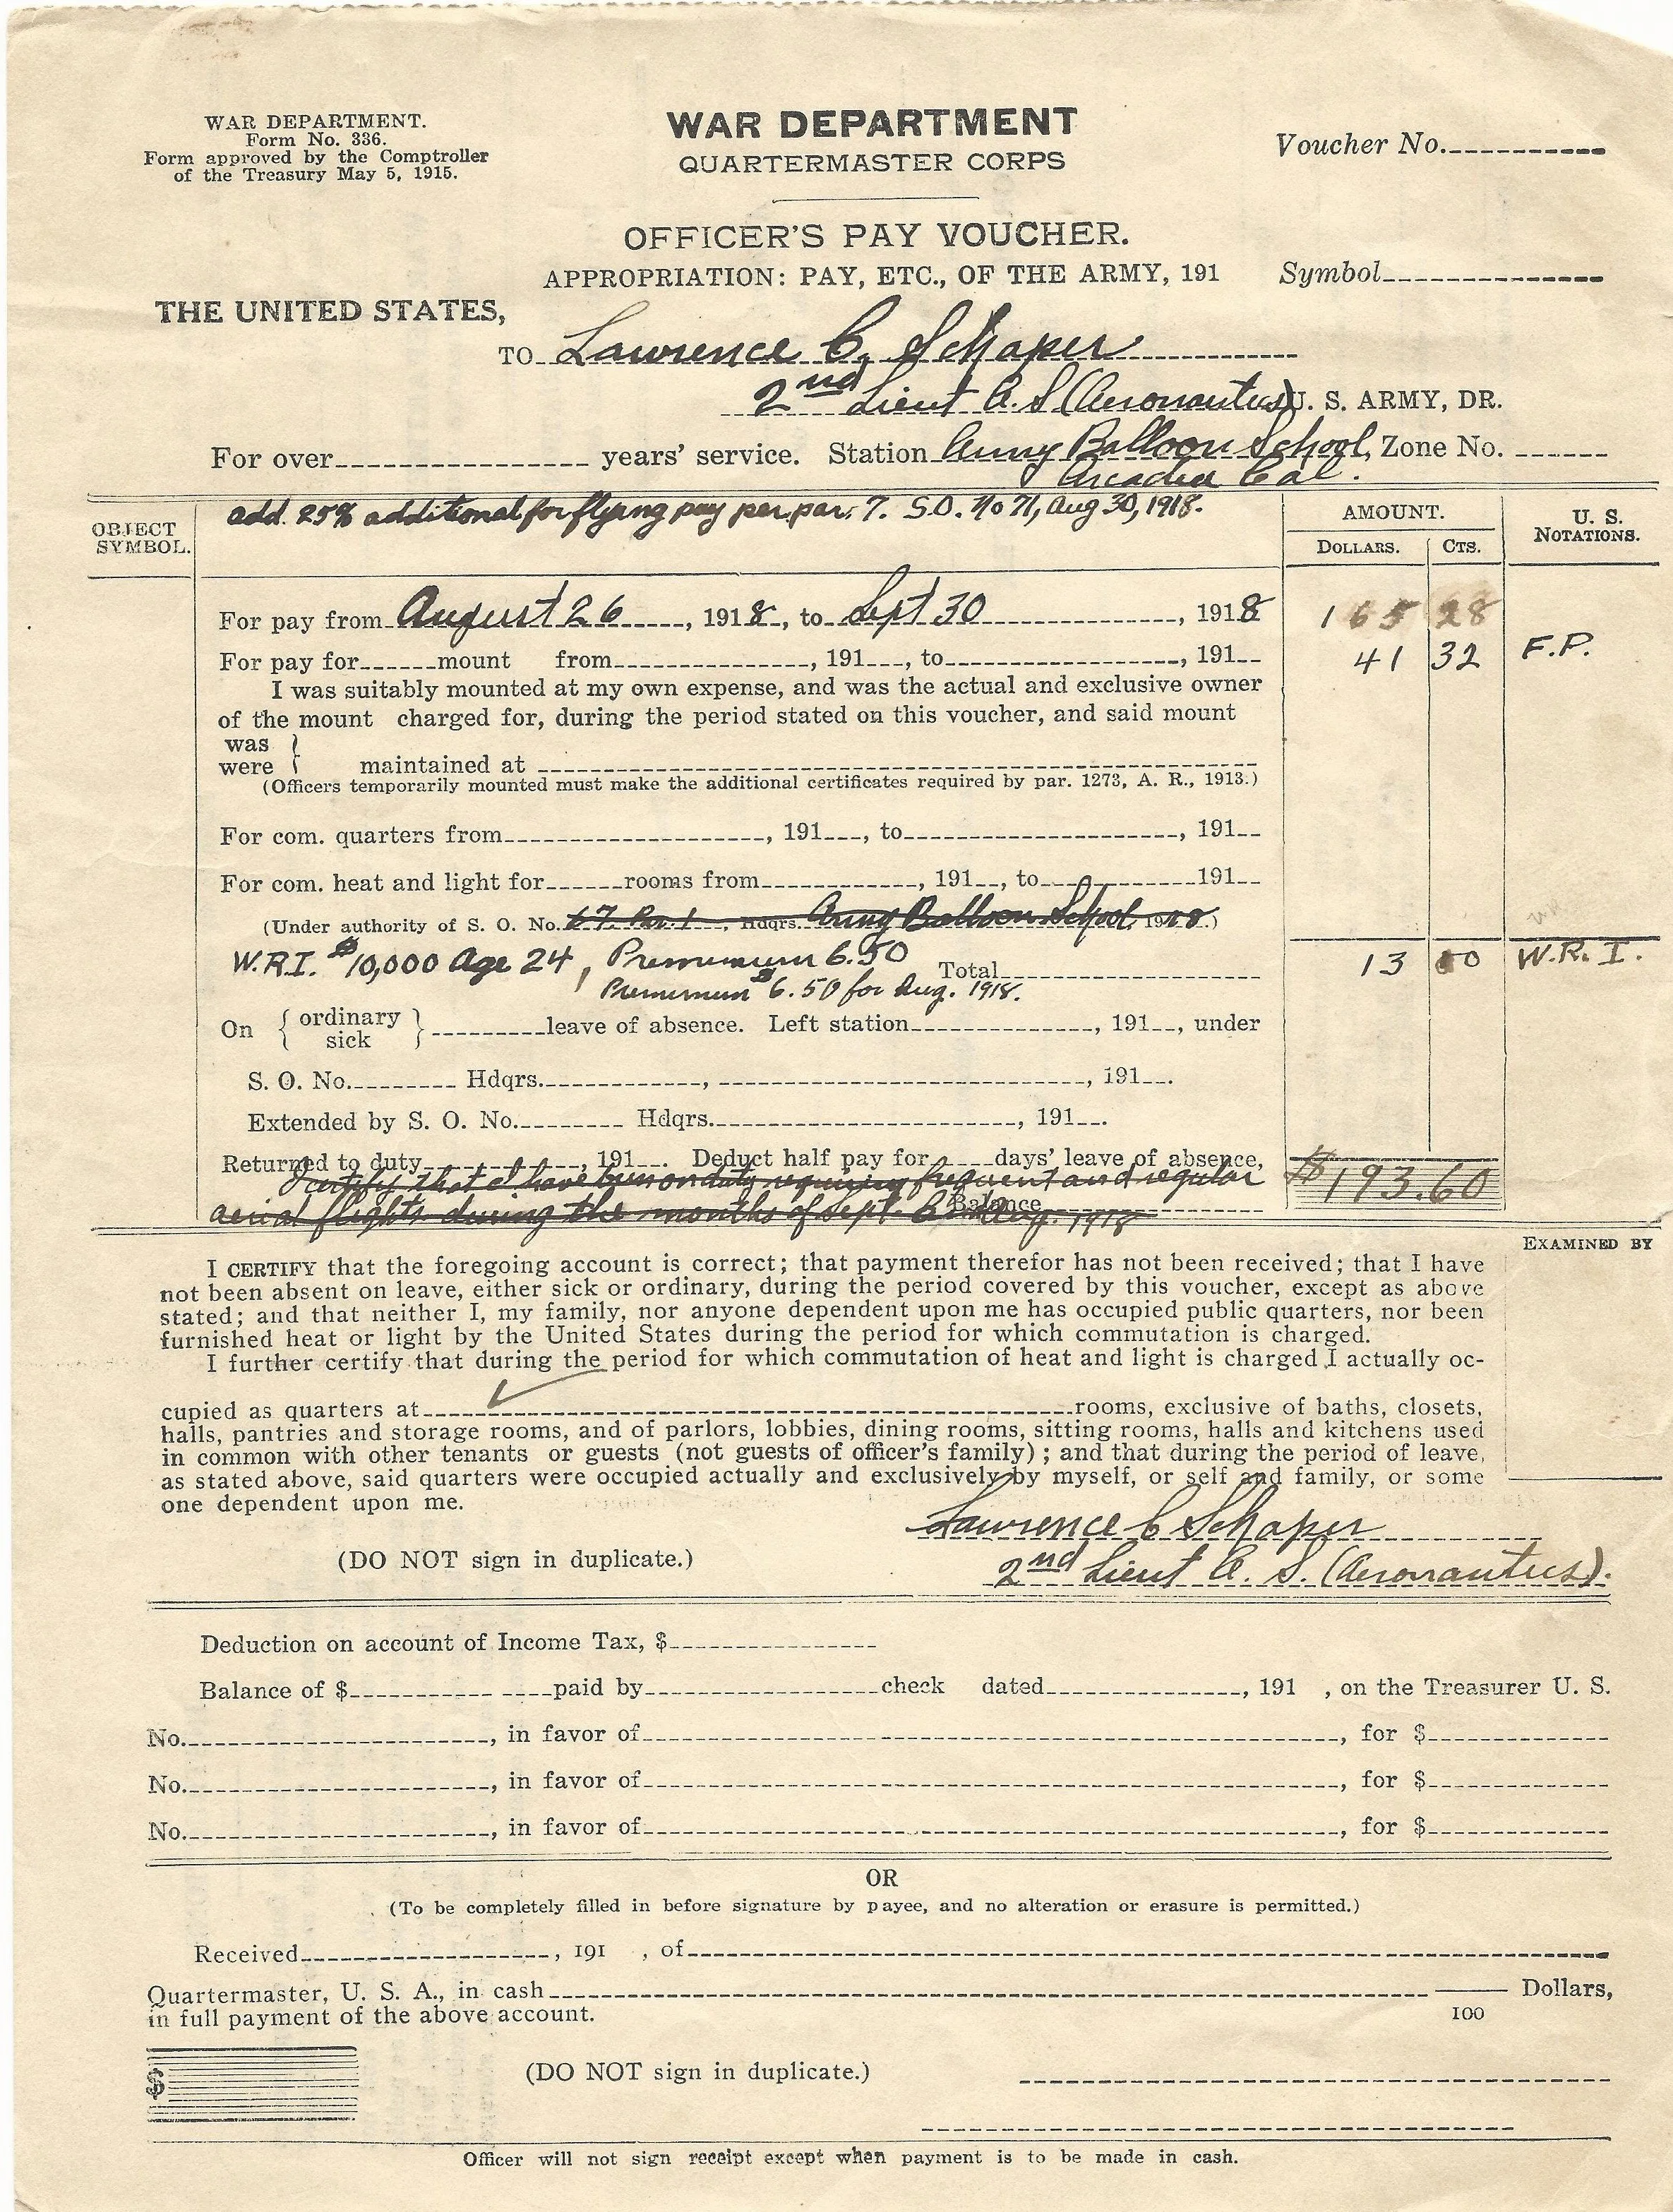 WAR DEPARTMENT.
Form No. 336.
Form approved by the Comptroller
of the Treasury May 5, 1915.
WAR DEPARTMENT
QUARTERMASTER CORPS
Voucher No.
OFFICER'S PAY VOUCHER.
APPROPRIATION: PAY, ETC., OF THE ARMY, 191
Symbol
THE UNITED STATES,
TO Lawrence C. Schaper
2nd Lieut A.S (Aeronautics) U. S. ARMY, DR.
For over years' service. Station Army Balloon School, Zone No.
Arcadia Cal.
OBJECT SYMBOL.
add. 25% additional for flying pay per par. 7. S.O. No 71, Aug 30, 1918.
AMOUNT.
DOLLARS. CTS.
U. S. NOTATIONS.
For pay from August 26, 1918, to Sept 30, 1918 165 28
For pay for mount from, 191, to, 191 41 32 F.P.
I was suitably mounted at my own expense, and was the actual and exclusive owner
of the mount charged for, during the period stated on this voucher, and said mount
was
were } maintained at
(Officers temporarily mounted must make the additional certificates required by par. 1273, A. R., 1913.)
For com. quarters from, 191, to, 191
For com. heat and light for rooms from, 191, to 191
(Under authority of S. O. No. 67. Par. 1, Hdqrs. Army Balloon School, 1918.)
W.R.I. $10,000 Age 24, Premimum 6.50 Total 13 00 W.R.I.
Premimum $6.50 for Aug. 1918.
On { ordinary
sick } leave of absence. Left station, 191, under
S. O. No. Hdqrs., , 191.
Extended by S. O. No. Hdqrs., 191.
Returned to duty, 191. Deduct half pay for days' leave of absence,
I certify that I have been on duty requiring frequent and regular
aerial flights during the months of Sept. Aug. 1918
Balance $193.60
EXAMINED BY
I CERTIFY that the foregoing account is correct; that payment therefor has not been received; that I have
not been absent on leave, either sick or ordinary, during the period covered by this voucher, except as above
stated; and that neither I, my family, nor anyone dependent upon me has occupied public quarters, nor been
furnished heat or light by the United States during the period for which commutation is charged.
I further certify that during the period for which commutation of heat and light is charged I actually oc-
cupied as quarters at rooms, exclusive of baths, closets,
halls, pantries and storage rooms, and of parlors, lobbies, dining rooms, sitting rooms, halls and kitchens used
in common with other tenants or guests (not guests of officer's family); and that during the period of leave,
as stated above, said quarters were occupied actually and exclusively by myself, or self and family, or some
one dependent upon me.
Lawrence C Schaper
(DO NOT sign in duplicate.)
2nd Lieut A. S. (Aeronautics).
Deduction on account of Income Tax, $
Balance of $ paid by check dated, 191 , on the Treasurer U. S.
No., in favor of, for $
No., in favor of, for $
No., in favor of, for $
OR
(To be completely filled in before signature by payee, and no alteration or erasure is permitted.)
Received, 191 , of
Quartermaster, U. S. A., in cash Dollars,
100
in full payment of the above account.
$
(DO NOT sign in duplicate.)
Officer will not sign receipt except when payment is to be made in cash.